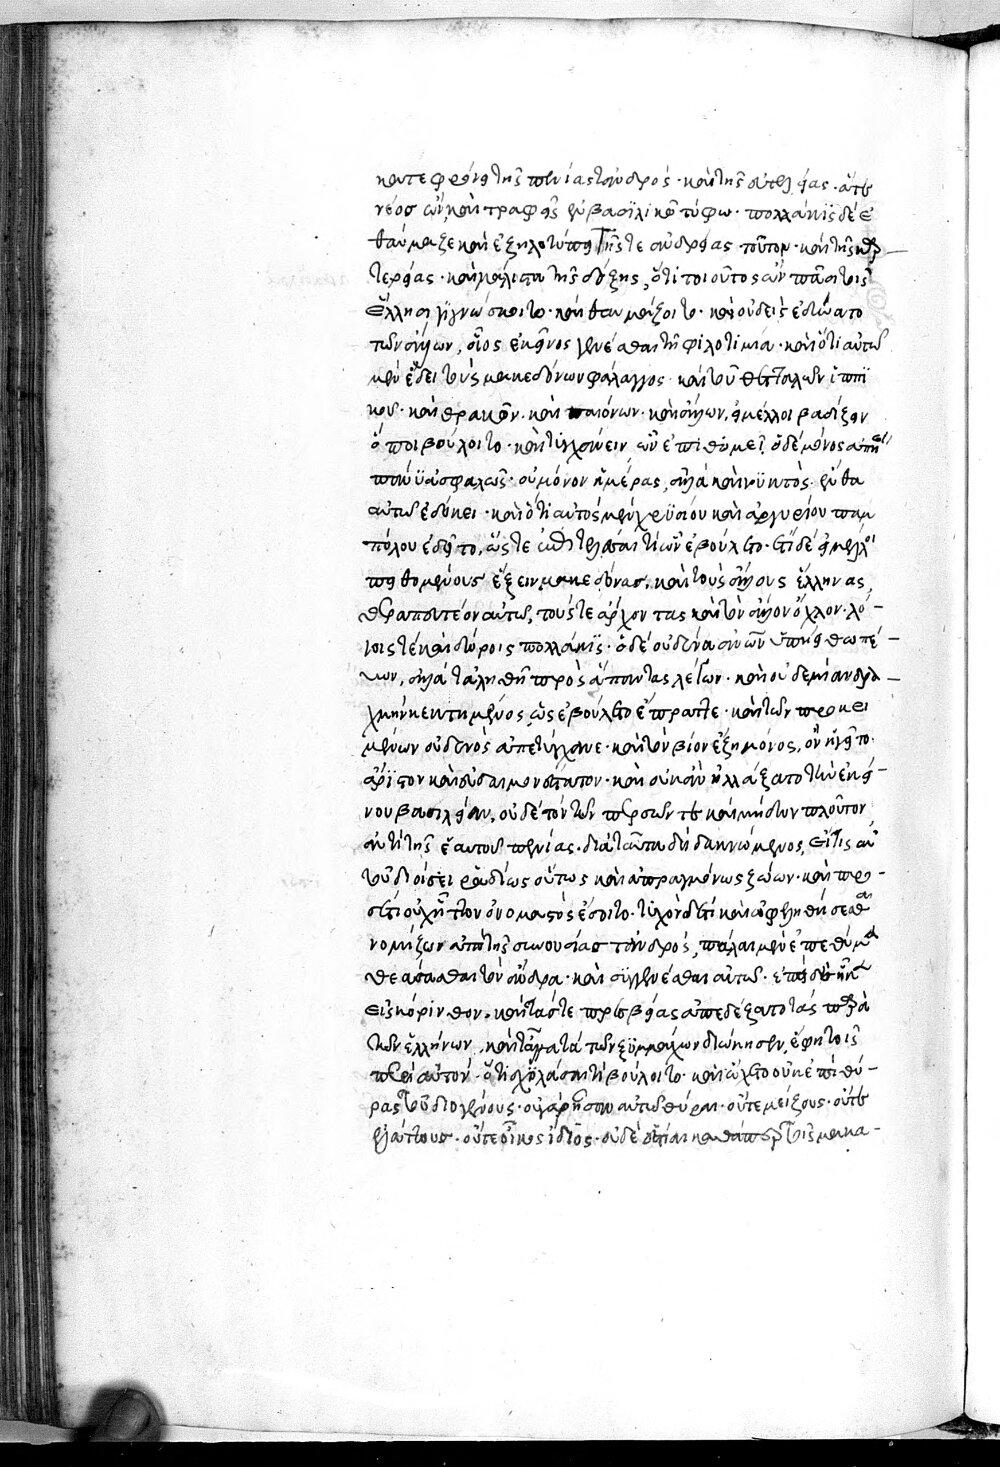 κατεφρόνει τῆς πενίας τἀνδρὸς· καὶ τῆς εὐτελείας. ἅτε
νέος ὢν, καὶ τραφεὶς ἐν βασιλικῷ τύφῳ· πολλάκις δὲ ἐ
θαύμαζε καὶ ἐζηλοτύπει τῆς τε ἀνδρείας τοῦτον· καὶ τῆς καρ
τερίας· καὶ μάλιστα τῆς δόξης, ὅτι τοιοῦτος ὢν πᾶσι τοῖς
ἕλλησι γιγνώσκοιτο· καὶ θαυμάζοιτο· καὶ οὐδεὶς ἐδύνατο
τῶν ἄλλων, οἷος ἐκεῖνος γενέσθαι τῇ φιλοτιμία· καὶ ὅτι αὐτῷ
μὲν ἔδει τῆς μακεδόνων φάλαγγος· καὶ τοῦ θετταλῶν ἱππι
κοῦ· καὶ θρακῶν. καὶ παιόνων. καὶ ἄλλων, εἰ μέλλοι βαδίζειν
ὅποι βούλοιτο· καὶ τυγχάνειν ὧν ἐπιθυμεῖ, ὁ δὲ μόνος ἀπῄει
πάνυ ἀσφαλῶς· οὐ μόνον ἡμέρας, ἀλλὰ καὶ νυκτὸς. ἔνθα
αὐτῷ ἐδόκει· καὶ ὅτι αὐτὸς μὲν χρυσίου καὶ ἀργυρίου παμ
πόλου ἐδεῖτο, ὥστε ἐπιτελέσαι τι ὧν ἐβούλετο. ἔτι δὲ εἰ μέλλοι
πειθομένους ἕξειν μακεδόνας, καὶ τοὺς ἄλλους ἕλληνας,
θεραπευτέον αὐτῷ, τούς τε ἄρχοντας καὶ τὸν ἄλλον ὄχλον· λό-
γοις τὲ καὶ δώροις πολλάκις· ὁ δὲ οὐδένα ἀνθρώπων ὑπῄει θωπεύ-
ων, ἀλλὰ τἀληθῆ πρὸς ἅπαντας λέγων· καὶ οὐδεμίαν δρα-
χμὴν κεκτημένος, ὡς ἐβούλετο ἔπραττε· καὶ τῶν προκει
μένων οὐδενὸς ἀπετύγχανε· καὶ τὸν βίον ἔζη μόνος, ὃν ἡγεῖτο.
ἄριστον καὶ εὐδαιμονέστατον· καὶ οὐκ ἂν ἠλλάξατο τὴν ἐκεί-
νου βασιλείαν, οὐδὲ τὸν τῶν περσῶν τε καὶ μήδων πλοῦτον
ἀντὶ τῆς ἑαυτοῦ πενίας. διὰ ταῦτα δὴ δακνόμενος, εἴ τις αὐ
τοῦ διοίσει ῥᾳδίως οὕτως καὶ ἀπραγμόνως ζῶων· καὶ προ-
σέτι οὐχ ἧττον ὀνομαστὸς ἔσοιτο· τυχὸν δέ τι καὶ ὠφεληθήσεσθαι
νομίζων ἀπὸ τῆς συνουσίας τἀνδρὸς, πάλαι μὲν ἐπεθύμει
θεάσασθαι τὸν ἄνδρα· καὶ συγγενέσθαι αὐτῷ. ἐπεὶ δὲ ἧκεν
εἰς κόρινθον. καὶ τάς τε πρεσβείας ἀπεδέξατο τὰς παρὰ
τῶν ἑλλήνων, καὶ τἄλλα τὰ τῶν ξυμμάχων διῴκησεν, ἔφη τοῖς
περὶ αὐτὸν· ὅτι σχολάσαι τι βούλοιτο· καὶ ᾤχετο οὐκ ἐπὶ θύ-
ρας τοῦ διογένους· οὐ γὰρ ἦσαν αὐτῷ θύραι· οὔτε μείζους· οὔτε
ἐλάττους· οὔτε οἶκος ἴδιος· οὐδὲ ἑστία καθάπερ τοῖς μακα-